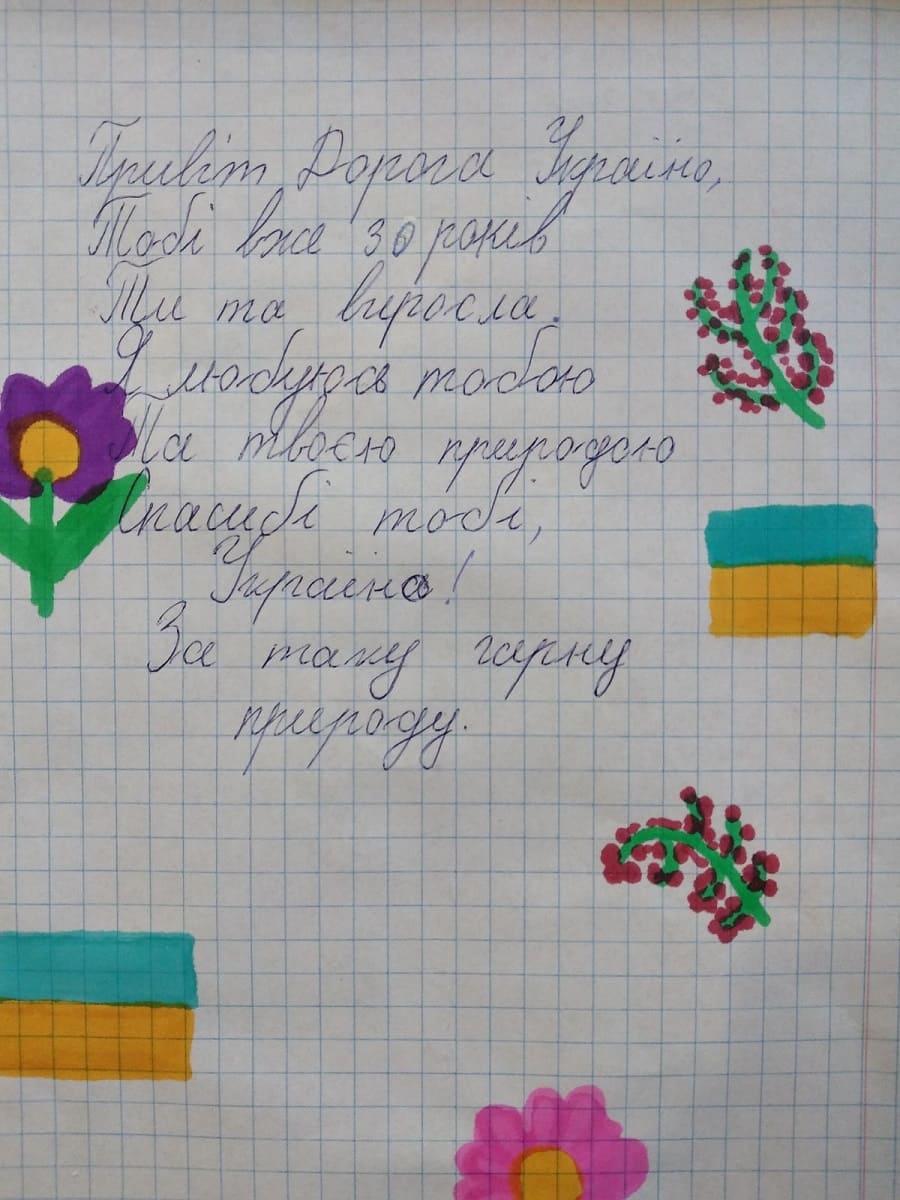 Привіт Дорога Україно,
Тобі вже 30 років
Ти та виросла.
Я любуюсь тобою
Та твоєю природою
Спасибі тобі,
Україна!
За таку гарну
природу.